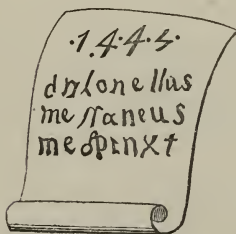 ·1.4·4·5·
dntonellus
messaneus
me pinxt